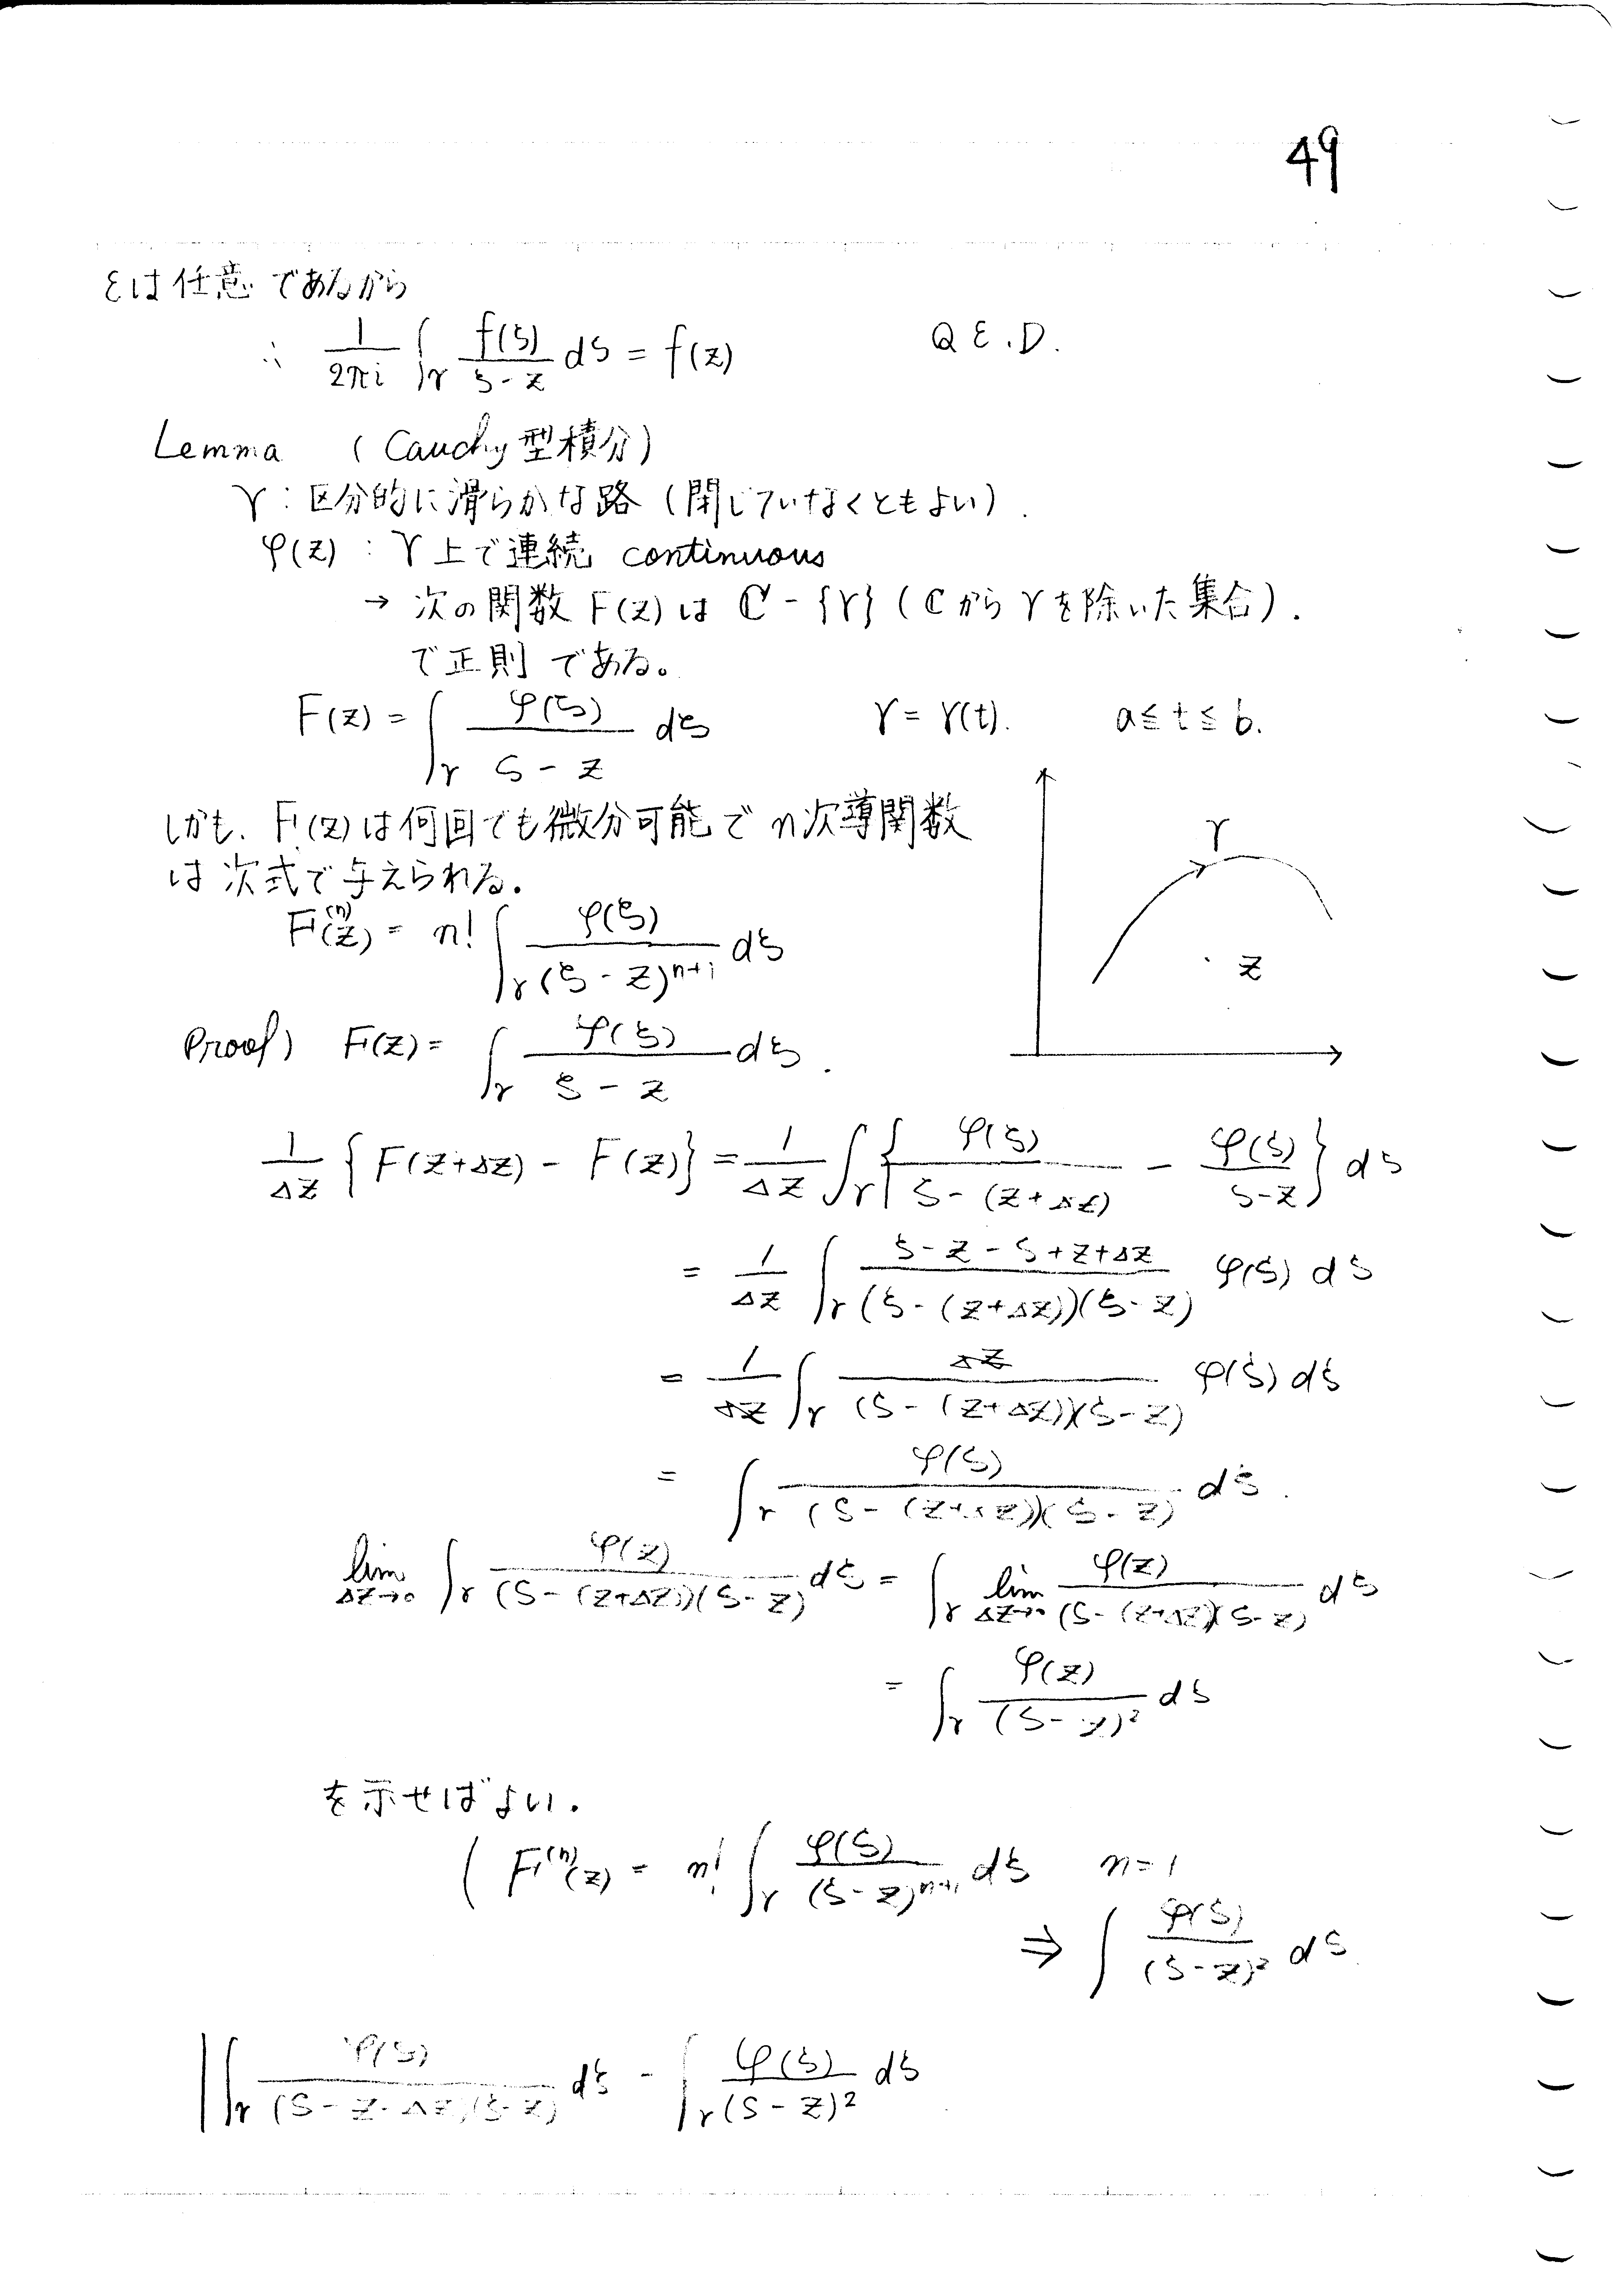 49
εは任意であるから
∴ \frac{1}{2πi} ∫_γ \frac{f(ζ)}{ζ-z} dζ = f(z)   Q.E.D.
Lemma (Cauchy型積分)
γ : 区分的に滑らかな路 (閉じていなくともよい).
φ(z) : γ上で連続 continuous
→ 次の関数 F(z)は ℂ - {γ} (ℂからγを除いた集合).
で正則である。
F(z) = ∫_γ \frac{φ(ζ)}{ζ - z} dζ   γ = γ(t).   a ≦ t ≦ b.
しかも. F(z)は何回でも微分可能で n次導関数
は次式で与えられる.
F^{(n)}(z) = n! ∫_γ \frac{φ(ζ)}{(ζ - z)^{n+1}} dζ
γ
z
Proof) F(z) = ∫_γ \frac{φ(ζ)}{ζ - z} dζ.
\frac{1}{Δz} { F(z+Δz) - F(z) } = \frac{1}{Δz} ∫_γ { \frac{φ(ζ)}{ζ - (z+Δz)} - \frac{φ(ζ)}{ζ-z} } dζ
= \frac{1}{Δz} ∫_γ \frac{ζ-z-ζ+z+Δz}{(ζ-(z+Δz))(ζ-z)} φ(ζ) dζ
= \frac{1}{Δz} ∫_γ \frac{Δz}{(ζ-(z+Δz))(ζ-z)} φ(ζ) dζ
= ∫_γ \frac{φ(ζ)}{(ζ-(z+Δz))(ζ-z)} dζ.
lim_{Δz→0} ∫_γ \frac{φ(z)}{(ζ-(z+Δz))(ζ-z)} dζ = ∫_γ lim_{Δz→0} \frac{φ(z)}{(ζ-(z+Δz))(ζ-z)} dζ
= ∫_γ \frac{φ(z)}{(ζ-z)^2} dζ
を示せばよい.
( F^{(n)}(z) = n! ∫_γ \frac{φ(ζ)}{(ζ-z)^{n+1}} dζ   n=1
⇒ ∫ \frac{φ(ζ)}{(ζ-z)^2} dζ.
| ∫_γ \frac{φ(ζ)}{(ζ-z-Δz)(ζ-z)} dζ - ∫_γ \frac{φ(ζ)}{(ζ-z)^2} dζ